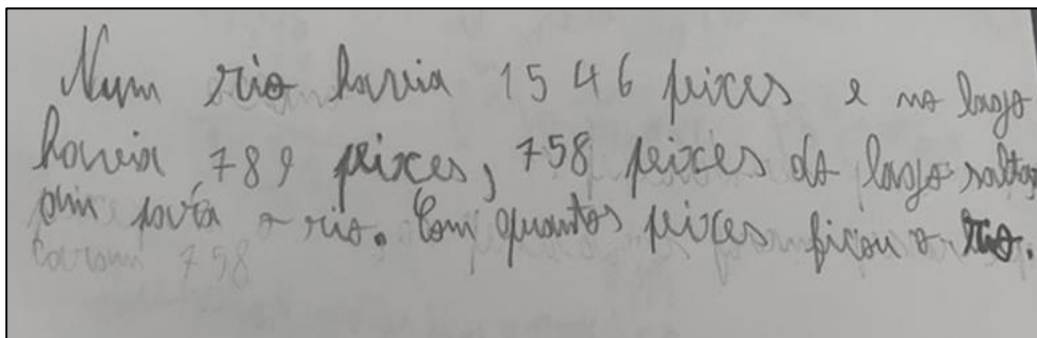 Num rio havia 1546 peixes e no lago
havia 789 peixes, 758 peixes do lago salta
para o rio. Com quantos peixes ficou o rio.
758